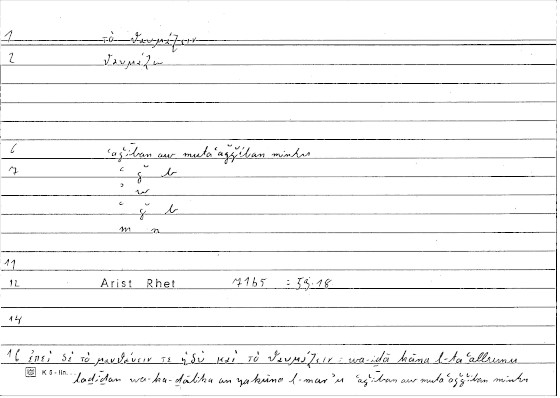 1 τὸ θαυμάζειν
2 θαυμάζω
6 ʿaǧīban au mutaʿaǧǧiban minhu
7 ʿ ǧ b
ʾ w
ʿ ǧ b
m n
11
12 Arist Rhet 71b5 = 59.18
14
16 ἐπεὶ δὲ τὸ μανθάνειν τε ἡδὺ καὶ τὸ θαυμάζειν : wa-iḏā kāna t-taʿallumu
K ö - lin.
laḏīḏan wa-ka-ḏālika an yakūna l-marʾu ʿaǧīban au mutaʿaǧǧiban minhu